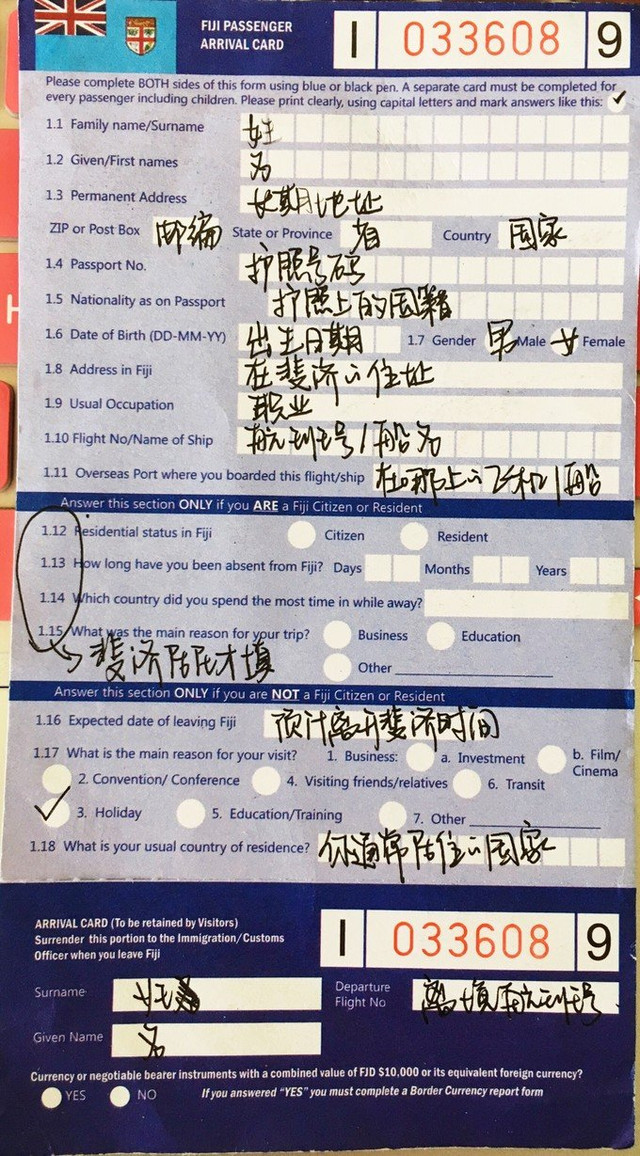 FIJI PASSENGER
ARRIVAL CARD
I 033608 9
Please complete BOTH sides of this form using blue or black pen. A separate card must be completed for
every passenger including children. Please print clearly, using capital letters and mark answers like this: ✓
1.1 Family name/Surname 姓
1.2 Given/First names 名
1.3 Permanent Address 长期地址
ZIP or Post Box 邮编 State or Province 省 Country 国家
1.4 Passport No. 护照号码
1.5 Nationality as on Passport 护照上的国籍
1.6 Date of Birth (DD-MM-YY) 出生日期 1.7 Gender 男 Male 女 Female
1.8 Address in Fiji 在斐济的住址
1.9 Usual Occupation 职业
1.10 Flight No/Name of Ship 航班号/船名
1.11 Overseas Port where you boarded this flight/ship 在哪上的飞机/船
Answer this section ONLY if you ARE a Fiji Citizen or Resident
1.12 Residential status in Fiji Citizen Resident
1.13 How long have you been absent from Fiji? Days Months Years
1.14 Which country did you spend the most time in while away?
1.15 What was the main reason for your trip? Business Education
斐济居民才填 Other
Answer this section ONLY if you are NOT a Fiji Citizen or Resident
1.16 Expected date of leaving Fiji 预计离开斐济时间
1.17 What is the main reason for your visit? 1. Business: a. Investment b. Film/
Cinema
2. Convention/ Conference 4. Visiting friends/relatives 6. Transit
✓ 3. Holiday 5. Education/Training 7. Other
1.18 What is your usual country of residence? 你通常居住的国家
ARRIVAL CARD (To be retained by Visitors)
Surrender this portion to the Immigration/Customs
Officer when you leave Fiji
I 033608 9
Surname 姓 Departure
Flight No 离境航班号
Given Name 名
Currency or negotiable bearer instruments with a combined value of FJD $10,000 or its equivalent foreign currency?
YES NO If you answered "YES" you must complete a Border Currency report form